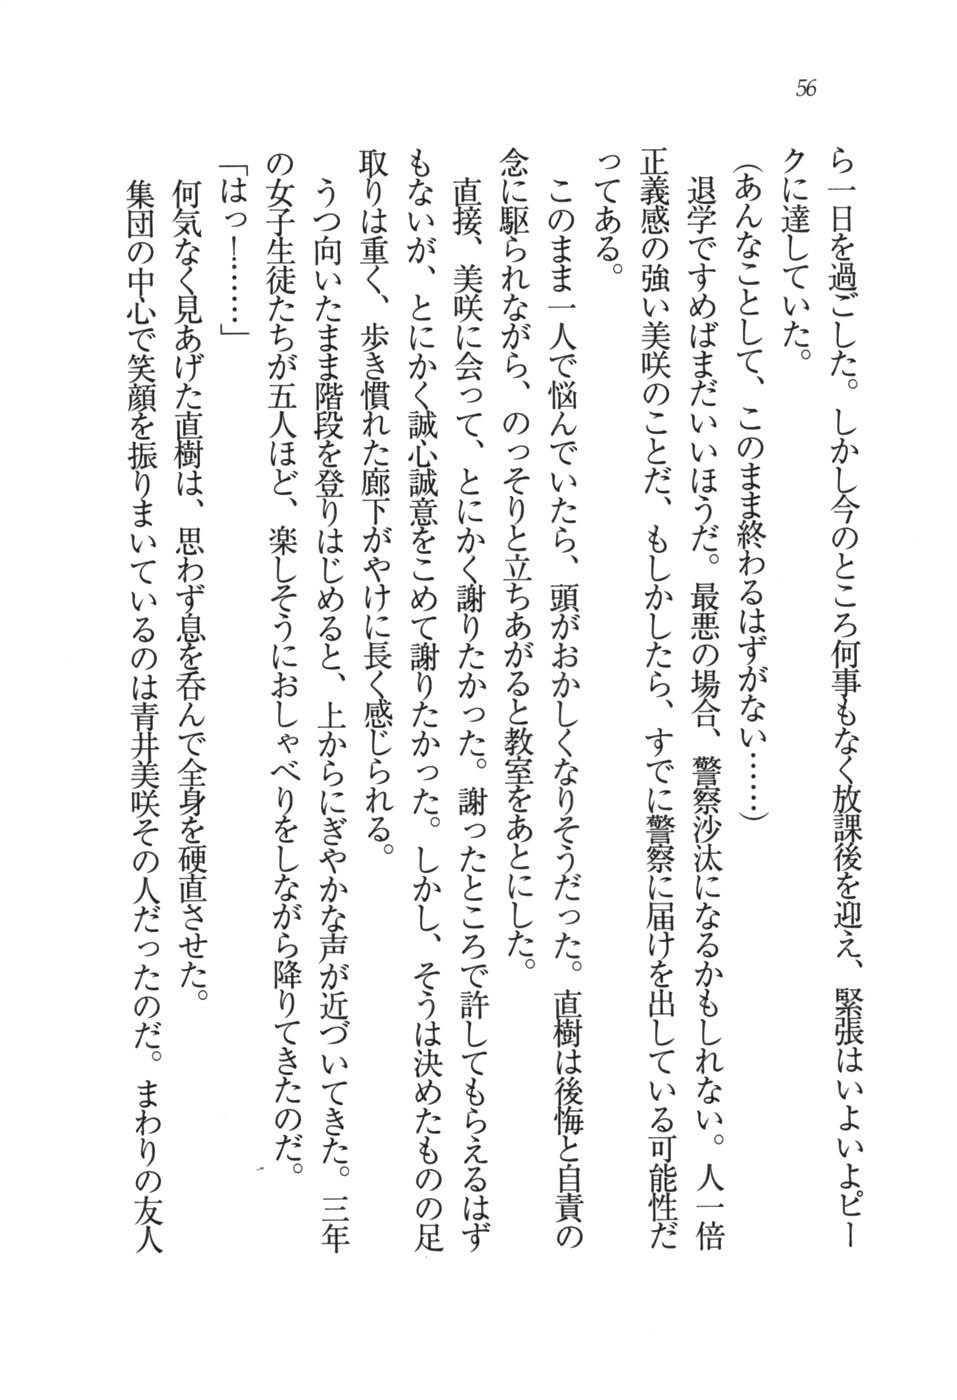 56
ら一日を過ごした。しかし今のところ何事もなく放課後を迎え、緊張はいよいよピー
クに達していた。
（あんなことして、このまま終わるはずがない……）
退学ですめばまだいいほうだ。最悪の場合、警察沙汰になるかもしれない。人一倍
正義感の強い美咲のことだ、もしかしたら、すでに警察に届けを出している可能性だ
ってある。
このまま一人で悩んでいたら、頭がおかしくなりそうだった。直樹は後悔と自責の
念に駆られながら、のっそりと立ちあがると教室をあとにした。
直接、美咲に会って、とにかく謝りたかった。謝ったところで許してもらえるはず
もないが、とにかく誠心誠意をこめて謝りたかった。しかし、そうは決めたものの足
取りは重く、歩き慣れた廊下がやけに長く感じられる。
うつ向いたまま階段を登りはじめると、上からにぎやかな声が近づいてきた。三年
の女子生徒たちが五人ほど、楽しそうにおしゃべりをしながら降りてきたのだ。
「はっ！……」
何気なく見あげた直樹は、思わず息を呑んで全身を硬直させた。
集団の中心で笑顔を振りまいているのは青井美咲その人だったのだ。まわりの友人